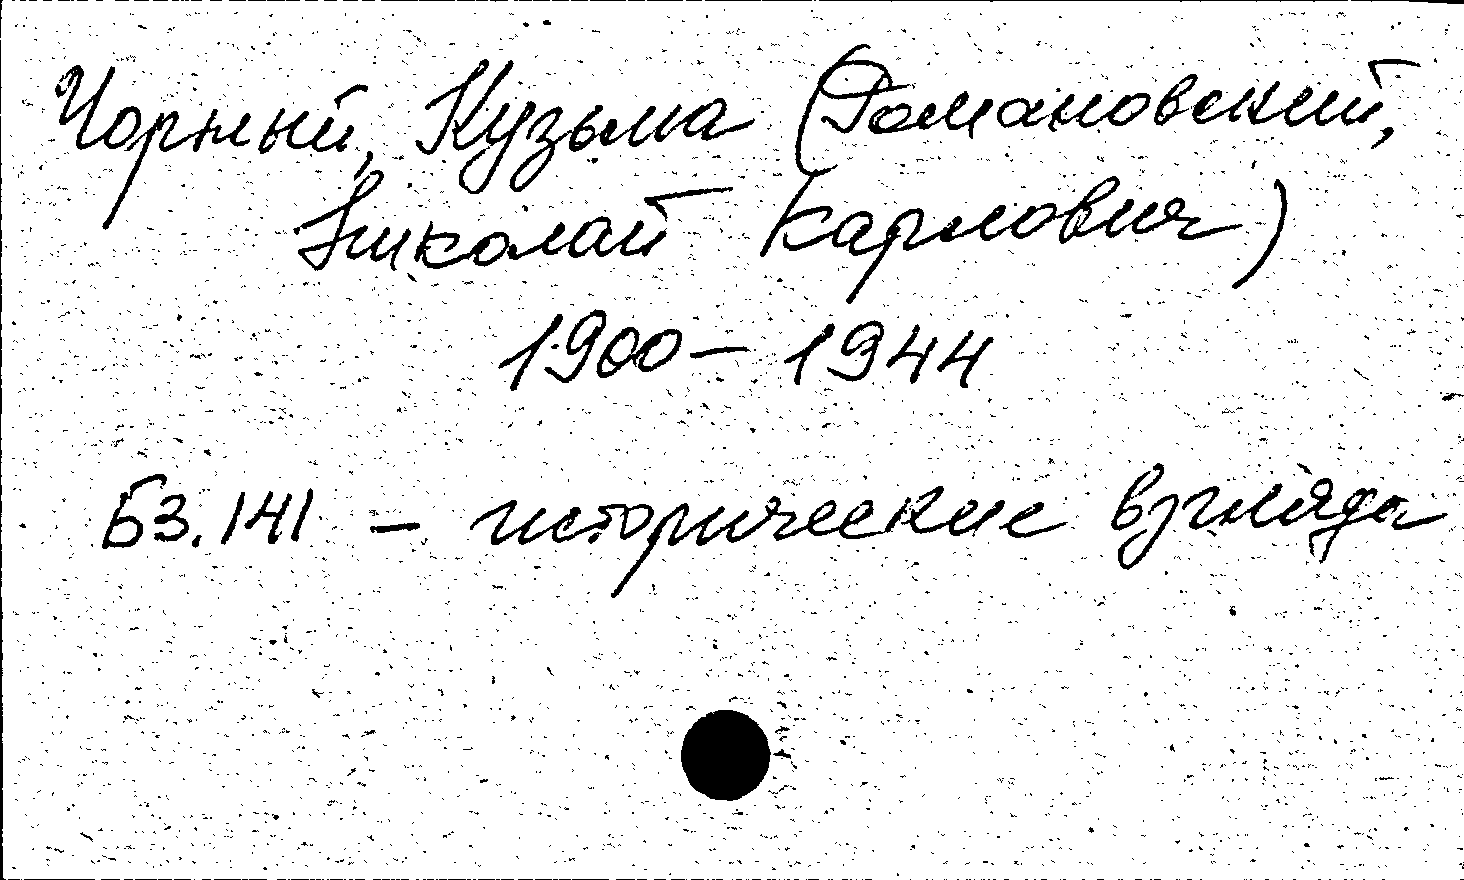 Чорный, Кузьма (Романовский,
Николай Карлович)
1900 – 1944
Б3.141 – исторические взгляды